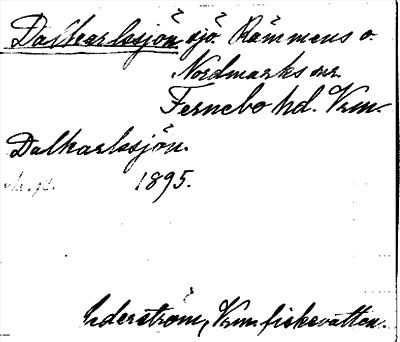 Dalkarlssjön sjö. Rämmens o.
Nordmarks snr.
Fernebo hd. Vrm.
Dalkarlssjön.
1895.
Cederström, Vrm fiskevatten.